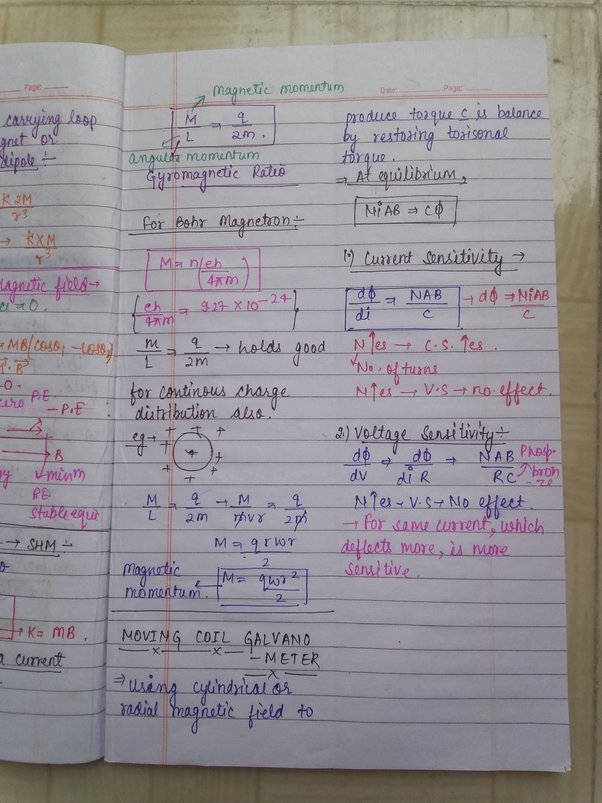 Page:
carrying loop
gnet or
dipole :-
K2M
r³
→ KXM
r³
agnetic field →
= 0.
MB(cosθ₁ - cosθ₂)
P.E
- P.E
B
↓ minm
P.E.
stable equi
→ SHM :-
→ K = MB.
a current
Magnetic momentum
M/L ⇒ q/2m.
angular momentum
Gyromagnetic Ratio
For Bohr Magnetron :-
M = n(eh/4πm)
{eh/4πm = 9.27 × 10⁻²⁴}
m/L = q/2m → holds good
for continous charge
distribution also.
eg →
+ + + + + + + + +
M/L = q/2m → M/mvr = q/2m
M = qrwr/2
Magnetic
momentum. ← M = qwr²/2
MOVING COIL GALVANO
- METER
⇒ Using cylindrical or
radial magnetic field to
Date: Page:
produce torque c is balance
by restoring torisonal
torque.
⇒ At equilibrium,
NiAB ⇒ cϕ
1.) Current Sensitivity →
dϕ/di ⇒ NAB/C → dϕ ⇒ NiAB/C
N↑es → C.S.↑es.
No. of turns
N↑es → V.S → no effect.
2) Voltage Sensitivity :-
dϕ/dV ⇒ dϕ/di R → NAB/RC
Phosp.
bron
N↑es → V.S → No effect.
→ For same current, which
deflects more, is more
sensitive.